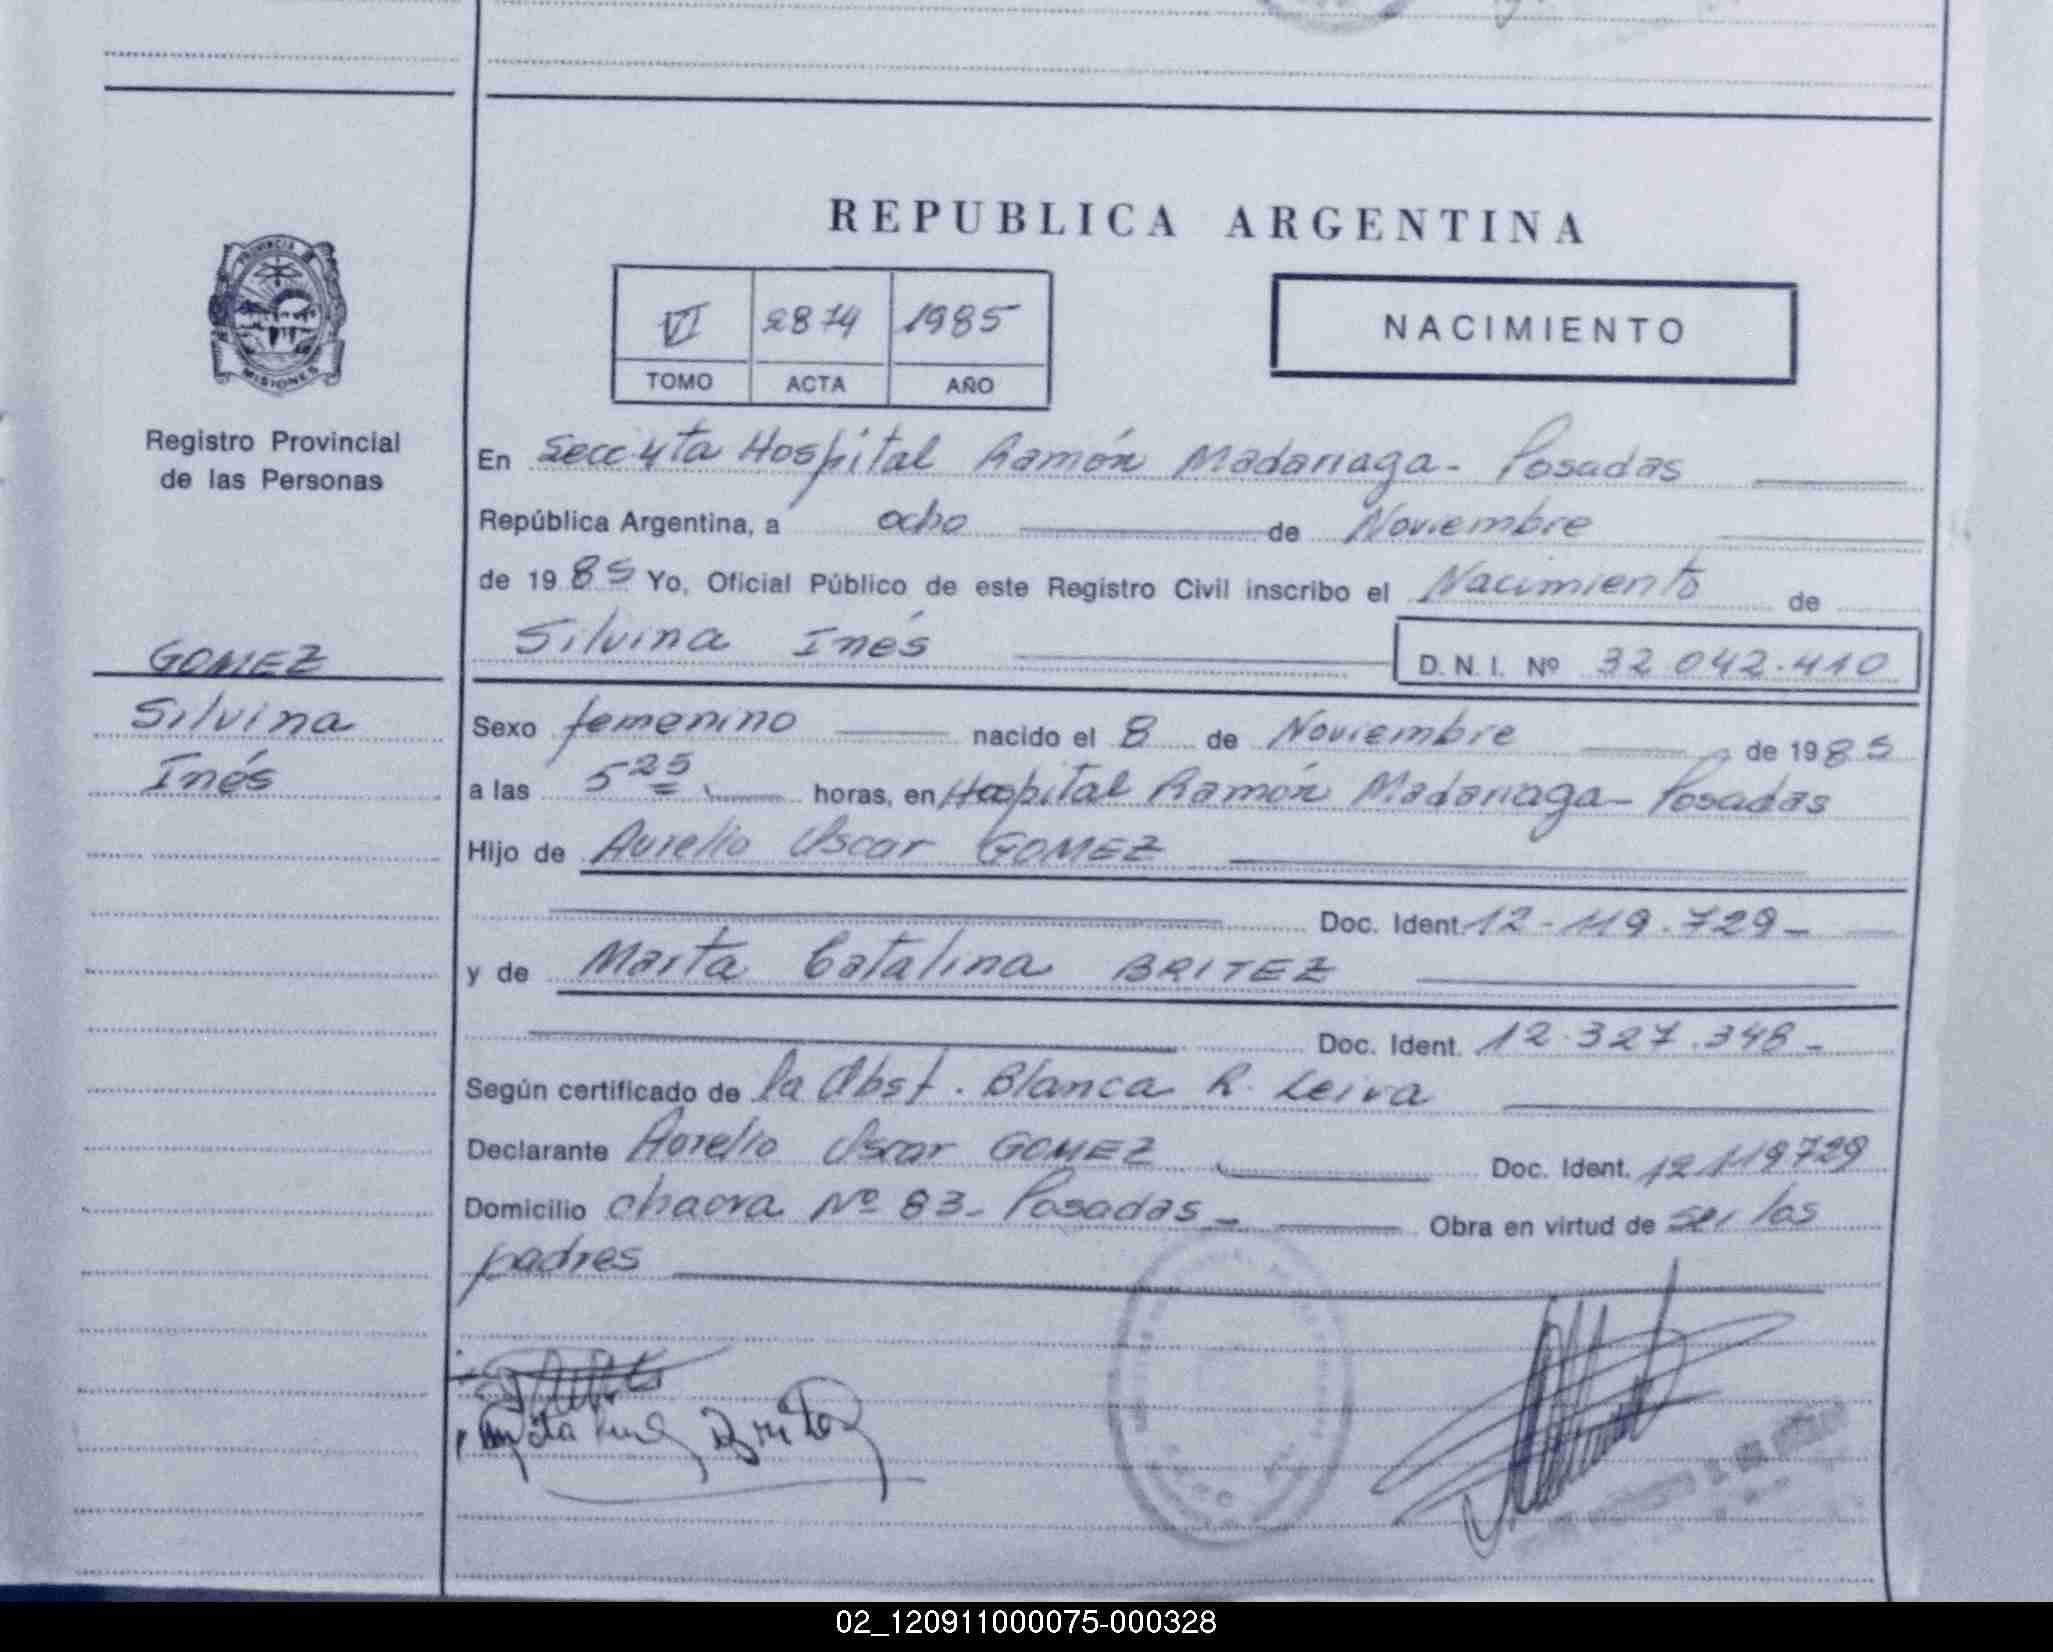 REPUBLICA ARGENTINA
PROVINCIA DE
MISIONES
Registro Provincial
de las Personas
VI 2874 1985
TOMO ACTA AÑO
NACIMIENTO
En Secc. 4ta Hospital Ramón Madariaga - Posadas
República Argentina, a ocho de Noviembre
de 1985 Yo, Oficial Público de este Registro Civil inscribo el Nacimiento de
Silvina Inés D.N.I. Nº 32.042.410
GOMEZ
Silvina
Inés
Sexo femenino nacido el 8 de Noviembre de 1985
a las 5 25 horas, en Hospital Ramón Madariaga - Posadas
Hijo de Aurelio Oscar GOMEZ
Doc. Ident. 12-119.729-
y de Marta Catalina BRITEZ
Doc. Ident. 12.327.348-
Según certificado de la Obst. Blanca R. Leiva
Declarante Aurelio Oscar GOMEZ Doc. Ident. 12119729
Domicilio chacra Nº 83- Posadas- Obra en virtud de ser los
padres
02_120911000075-000328